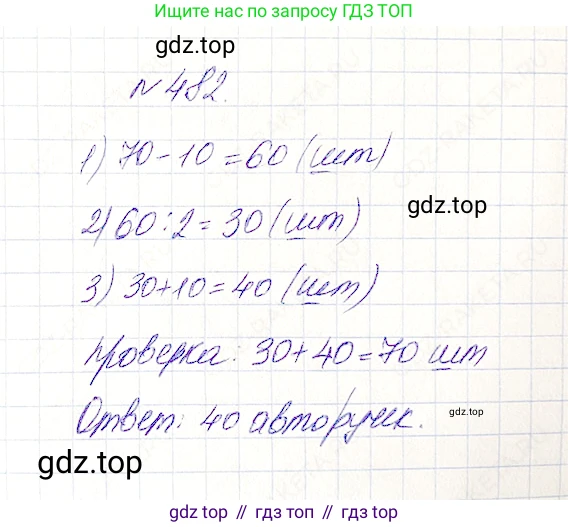 Ищите нас по запросу ГДЗ ТОП
gdz.top
N 482.
1) 70-10=60 (шт)
gdz.top
2) 60:2=30 (шт)
3) 30+10=40 (шт)
Проверка: 30+40=70 шт
Ответ: 40 авторучек.
gdz.top
gdz.top
gdz.top // гдз топ // гдз.top